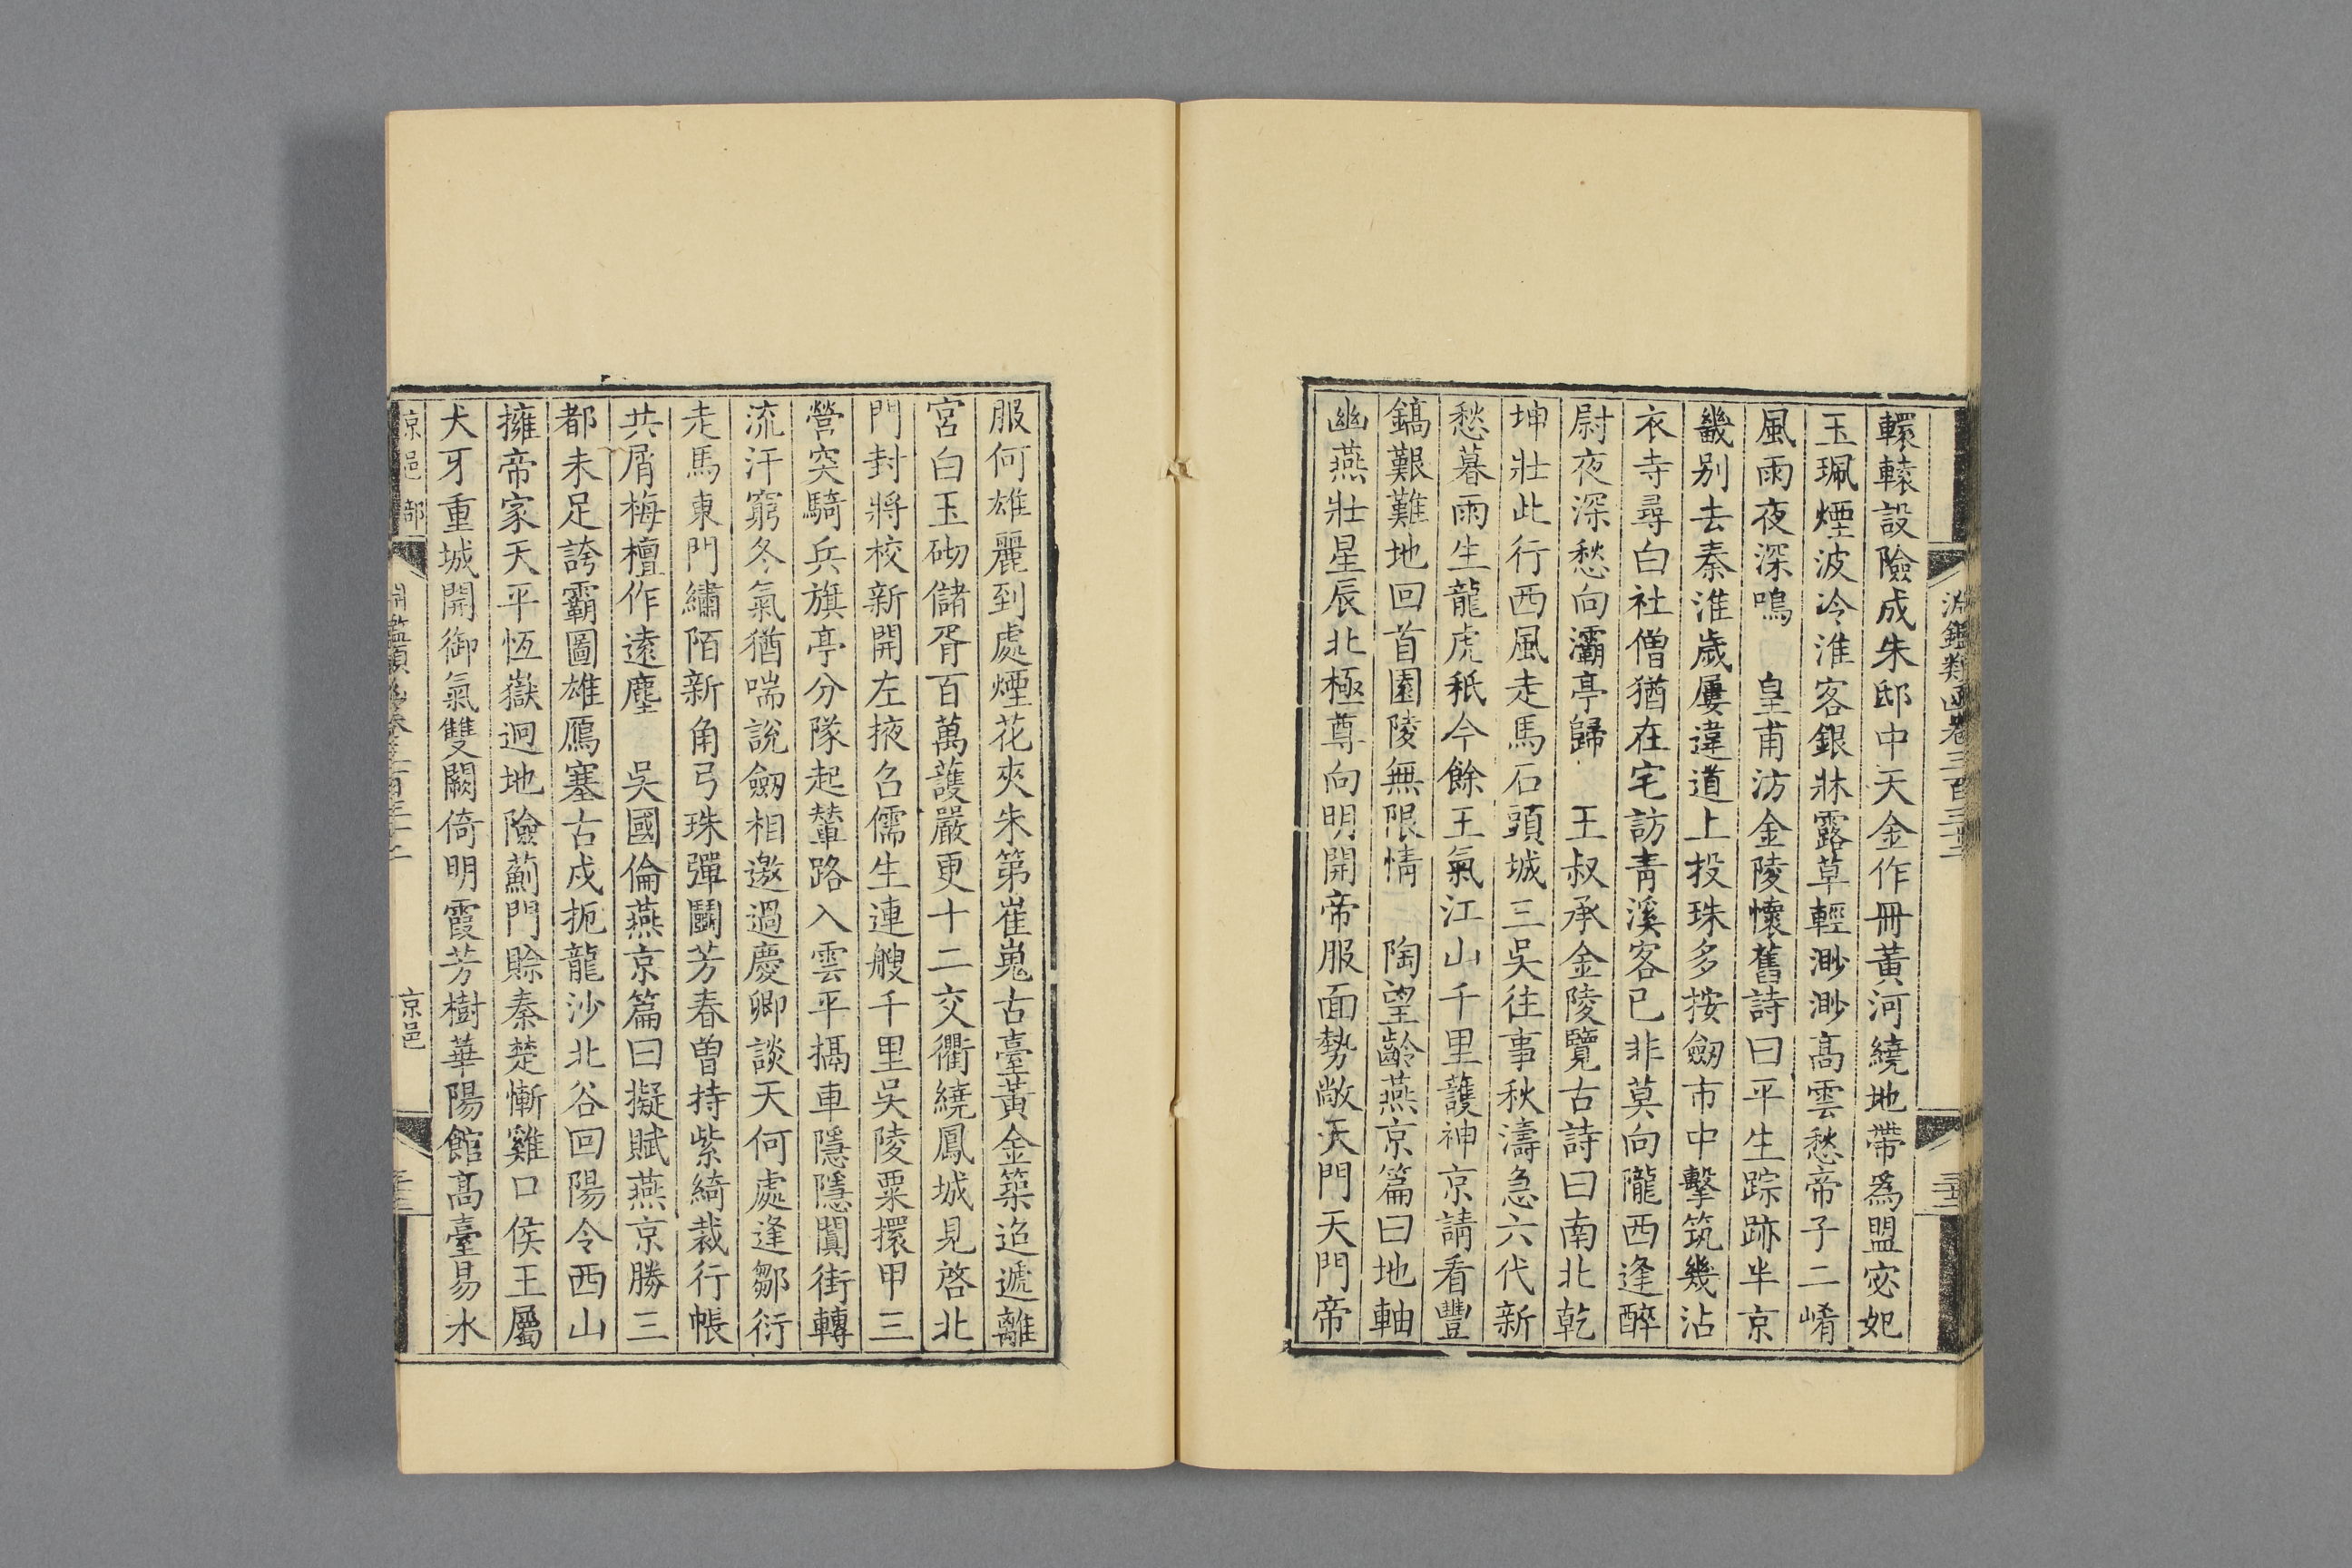 淵鑑類函卷三百三十三
轘轅設險成朱邸中天金作冊黃河繞地帶爲盟宓妃
玉珮煙波冷淮客銀牀露草輕渺渺高雲愁帝子二崤
風雨夜深鳴　皇甫汸金陵懷舊詩曰平生踪跡半京
畿別去秦淮歲屢違道上投珠多按劒市中擊筑幾沾
衣寺尋白社僧猶在宅訪青溪客已非莫向隴西逢醉
尉夜深愁向灞亭歸　王叔承金陵覽古詩曰南北乾
坤壯此行西風走馬石頭城三吳往事秋濤急六代新
愁暮雨生龍虎秪今餘王氣江山千里護神京請看豐
鎬艱難地回首園陵無限情　陶望齡燕京篇曰地軸
幽燕壯星辰北極尊向明開帝服面勢敞天門天門帝
服何雄麗到處煙花夾朱第崔嵬古臺黃金築迢遞離
宮白玉砌儲胥百萬護嚴更十二交衢繞鳳城見啓北
門封將校新開左掖召儒生連艘千里吳陵粟擐甲三
營突騎兵旗亭分隊起輦路入雲平搹車隱隱闐街轉
流汗窮冬氣猶喘說劒相邀過慶卿談天何處逢鄒衍
走馬東門繡陌新角弓珠彈鬭芳春曽持紫綺裁行帳
共屑梅檀作遠塵　吳國倫燕京篇曰擬賦燕京勝三
都未足誇霸圖雄鴈塞古戍扼龍沙北谷回陽令西山
擁帝家天平恆嶽迥地險薊門賒秦楚慚雞口侯王屬
犬牙重城開御氣雙闕倚明霞芳樹華陽館高臺易水
京邑部
京邑